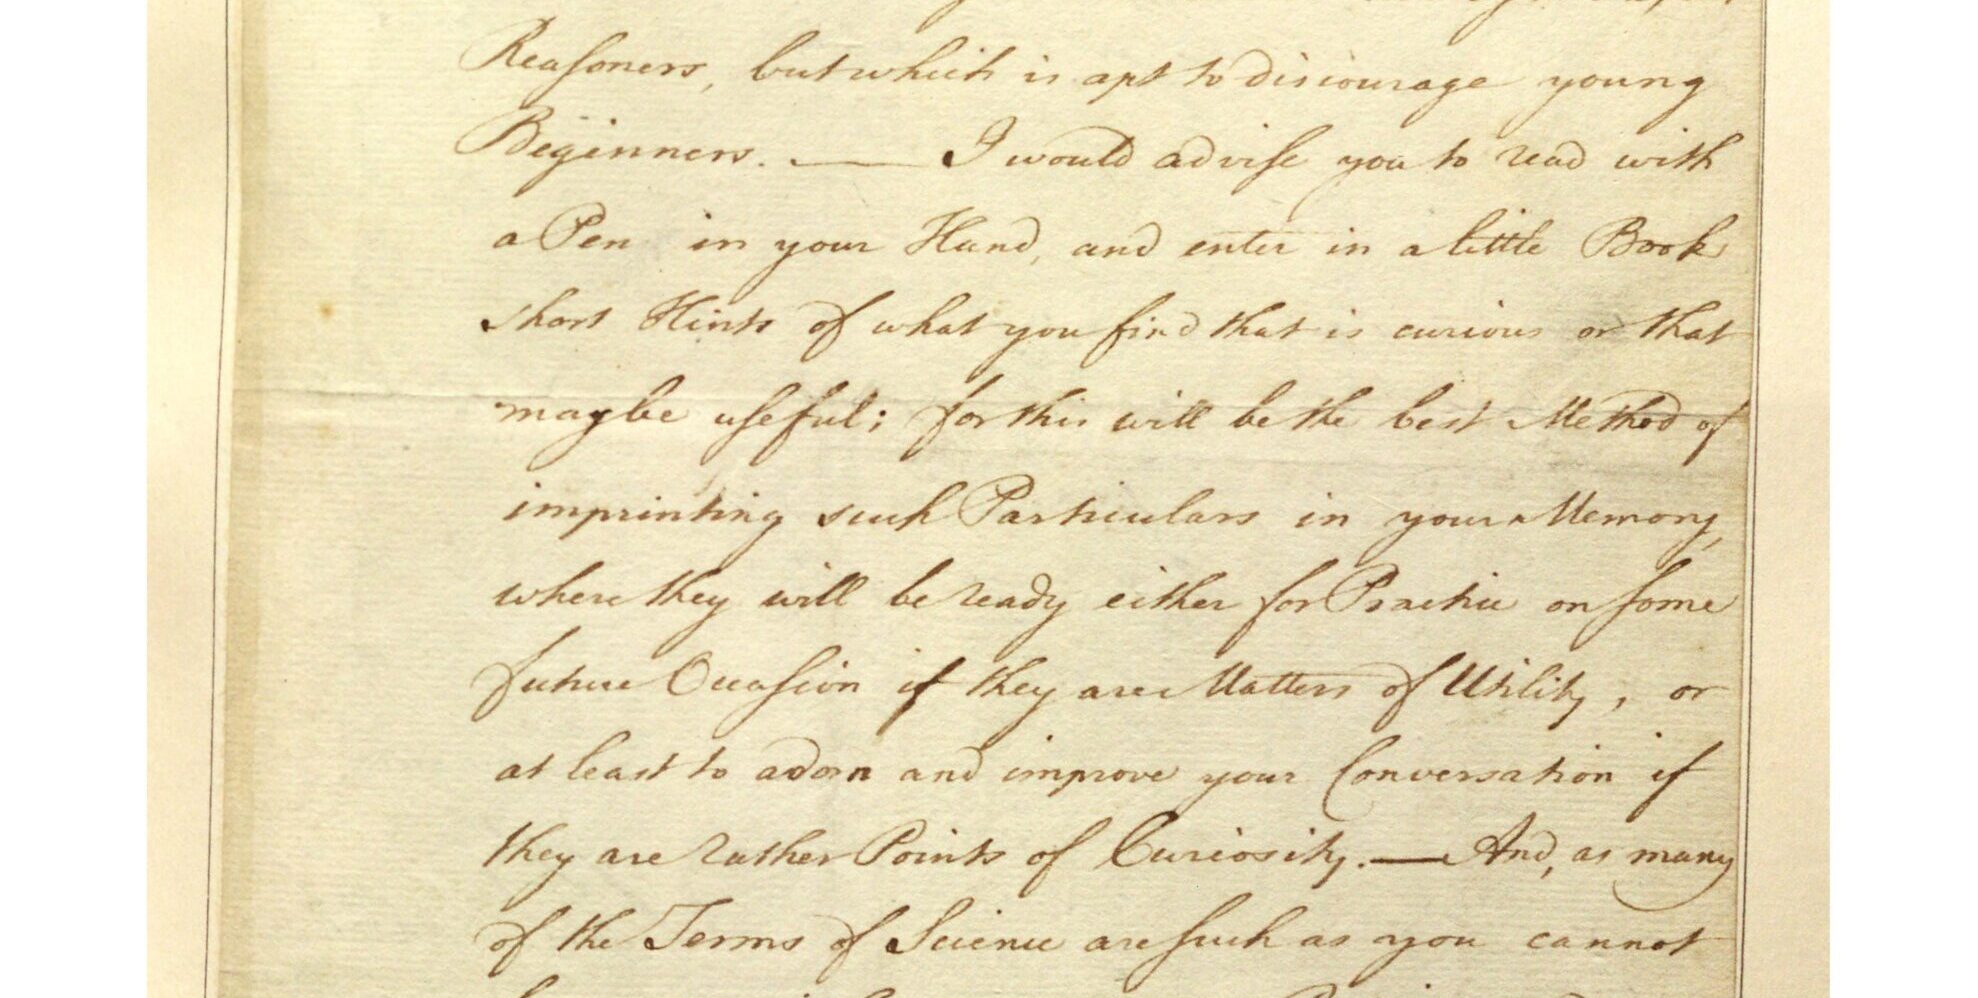 Reasoners, but which is apt to discourage young
Beginners. — I would advise you to read with
a Pen in your Hand, and enter in a little Book
short Hints of what you find that is curious or that
may be useful; for this will be the best Method of
imprinting such Particulars in your Memory,
where they will be ready either for Practice on some
future Occasion if they are Matters of Utility, or
at least to adorn and improve your Conversation if
they are rather Points of Curiosity. — And, as many
of the Terms of Science are such as you cannot